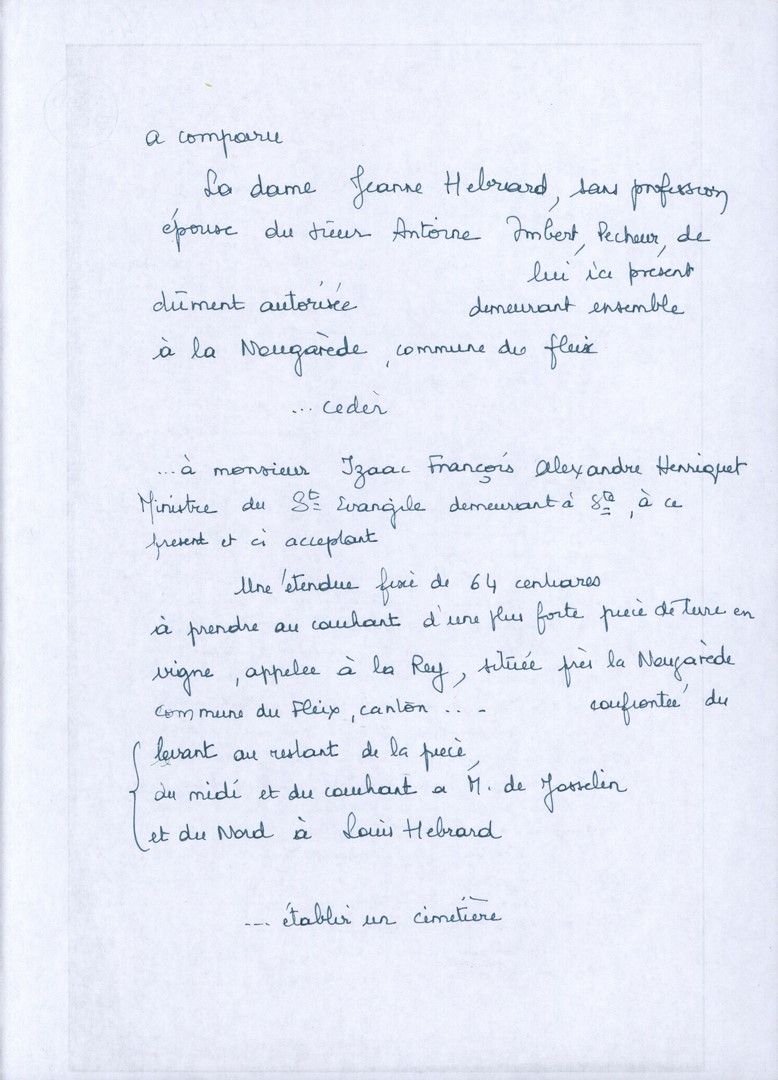 a comparu
La dame Jeanne Hebrard, sans profession
épouse du sieur Antoine Imbert, Pecheur, de
lui ici présent
dûment autorisée demeurant ensemble
à la Nougarède, commune du fleix
... ceder
... à monsieur Izaac François Alexandre Henriquet
Ministre du St Evangile demeurant à Ste, à ce
présent et ci acceptant
Une étendue fixé de 64 centiares
à prendre au couchant d'une plus forte pièce de terre en
vigne, appelée à la Rey, située près la Nougarède
commune du Fleix, canton ... - confrontée du
levant au restant de la pièce,
du midi et du couchant a M. de Josselin
et du Nord à Louis Hebrard
.... établir un cimetière